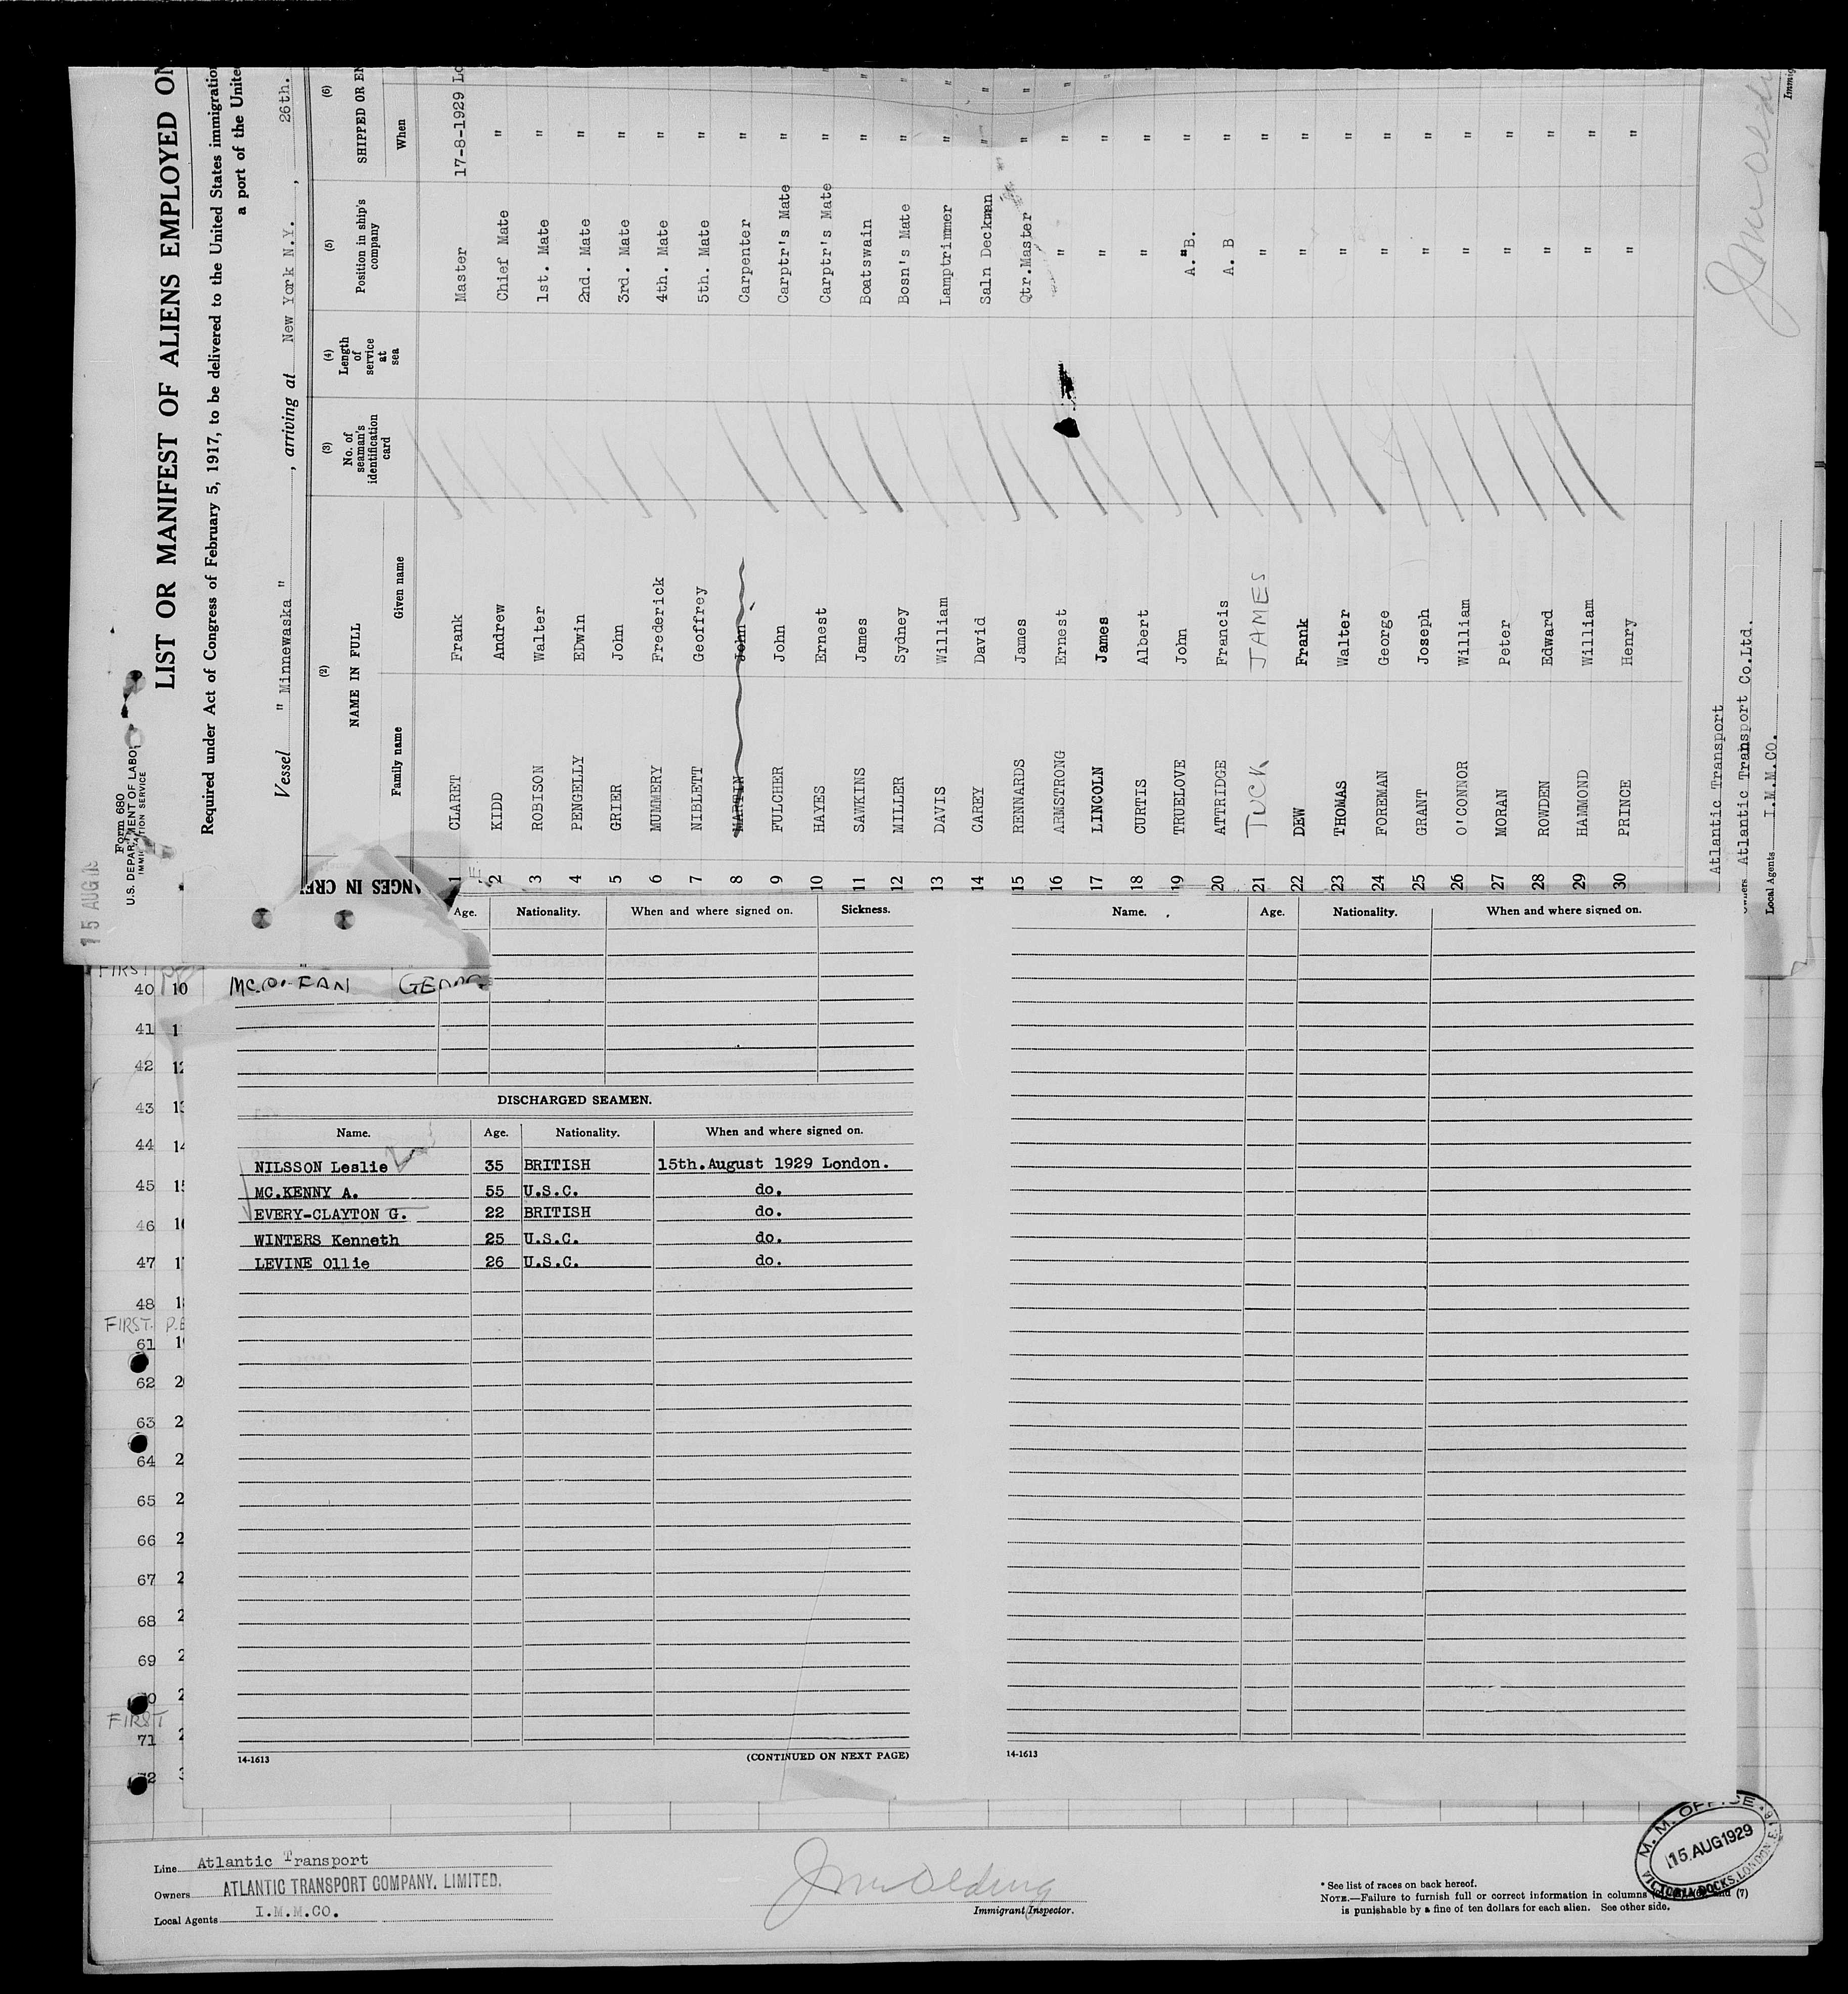 15 AUG 19
Form 680
U.S. DEPARTMENT OF LABOR
IMMIGRATION SERVICE
LIST OR MANIFEST OF ALIENS EMPLOYED ON
Required under Act of Congress of February 5, 1917, to be delivered to the United States immigration
a port of the United
Vessel " Minnewaska " , arriving at New York N.Y. , 26th.
(2) (3) (4) (5) (6)
NAME IN FULL No. of seaman's identification card Length of service at sea Position in ship's company SHIPPED OR EN
Family name Given name When
1 CLARET Frank Master 17-8-1929 Lo
2 KIDD Andrew Chief Mate "
3 ROBISON Walter 1st. Mate "
4 PENGELLY EDwin 2nd. Mate "
5 GRIER John 3rd. Mate "
6 MUMMERY Frederick 4th. Mate "
7 NIBLETT Geoffrey 5th. Mate "
8 MARTIN John Carpenter "
9 FULCHER John Carptr's Mate " "
10 HAYES Ernest Carptr's Mate " "
11 SAWKINS James Boatswain " "
12 MILLER Sydney Bosn's Mate " "
13 DAVIS William Lamptrimmer " "
14 CAREY David Saln Deckman " "
15 RENNARDS James Qtr.Master " "
16 ARMSTRONG Ernest " " "
17 LINCOLN James " " "
18 CURTIS Albert " " "
19 TRUELOVE John A."B. "
20 ATTRIDGE Francis A. B "
21 TUCK JAMES " "
22 DEW Frank " "
23 THOMAS Walter " "
24 FOREMAN George " "
25 GRANT Joseph " "
26 O'CONNOR William " "
27 MORAN Peter " "
28 ROWDEN Edward " "
29 HAMMOND William " "
30 PRINCE Henry " "
Atlantic Transport
Owners Atlantic Transport Co.Ltd.
Local Agents I.M.M.CO.
Immig
NGES IN CRE
Age. Nationality. When and where signed on. Sickness.
Name. Age. Nationality. When and where signed on.
FIRST
40 10
GEORG
41 1
42 12
43 13
44 14
45 15
46 16
47 1
48 1
FIRST. P.E
61 1
62 2
63 2
64 2
65 2
66 2
67 2
68 2
69 2
70 2
FIRST
71 2
72 3
DISCHARGED SEAMEN.
Name. Age. Nationality. When and where signed on.
NILSSON Leslie 35 BRITISH 15th.August 1929 London.
MC.KENNY A. 55 U.S.C. do.
EVERY-CLAYTON G. 22 BRITISH do.
WINTERS Kenneth 25 U.S.C. do.
LEVINE Ollie 26 U.S.C. do.
14-1613 (CONTINUED ON NEXT PAGE)
14-1613
Line Atlantic Transport
Owners ATLANTIC TRANSPORT COMPANY, LIMITED.
Local Agents I.M.M.CO.
Immigrant Inspector.
* See list of races on back hereof.
NOTE.—Failure to furnish full or correct information in columns and (7)
is punishable by a fine of ten dollars for each alien. See other side.
M. M. OFFICE
15 AUG 1929
VICTORIA DOCKS, LONDON E.